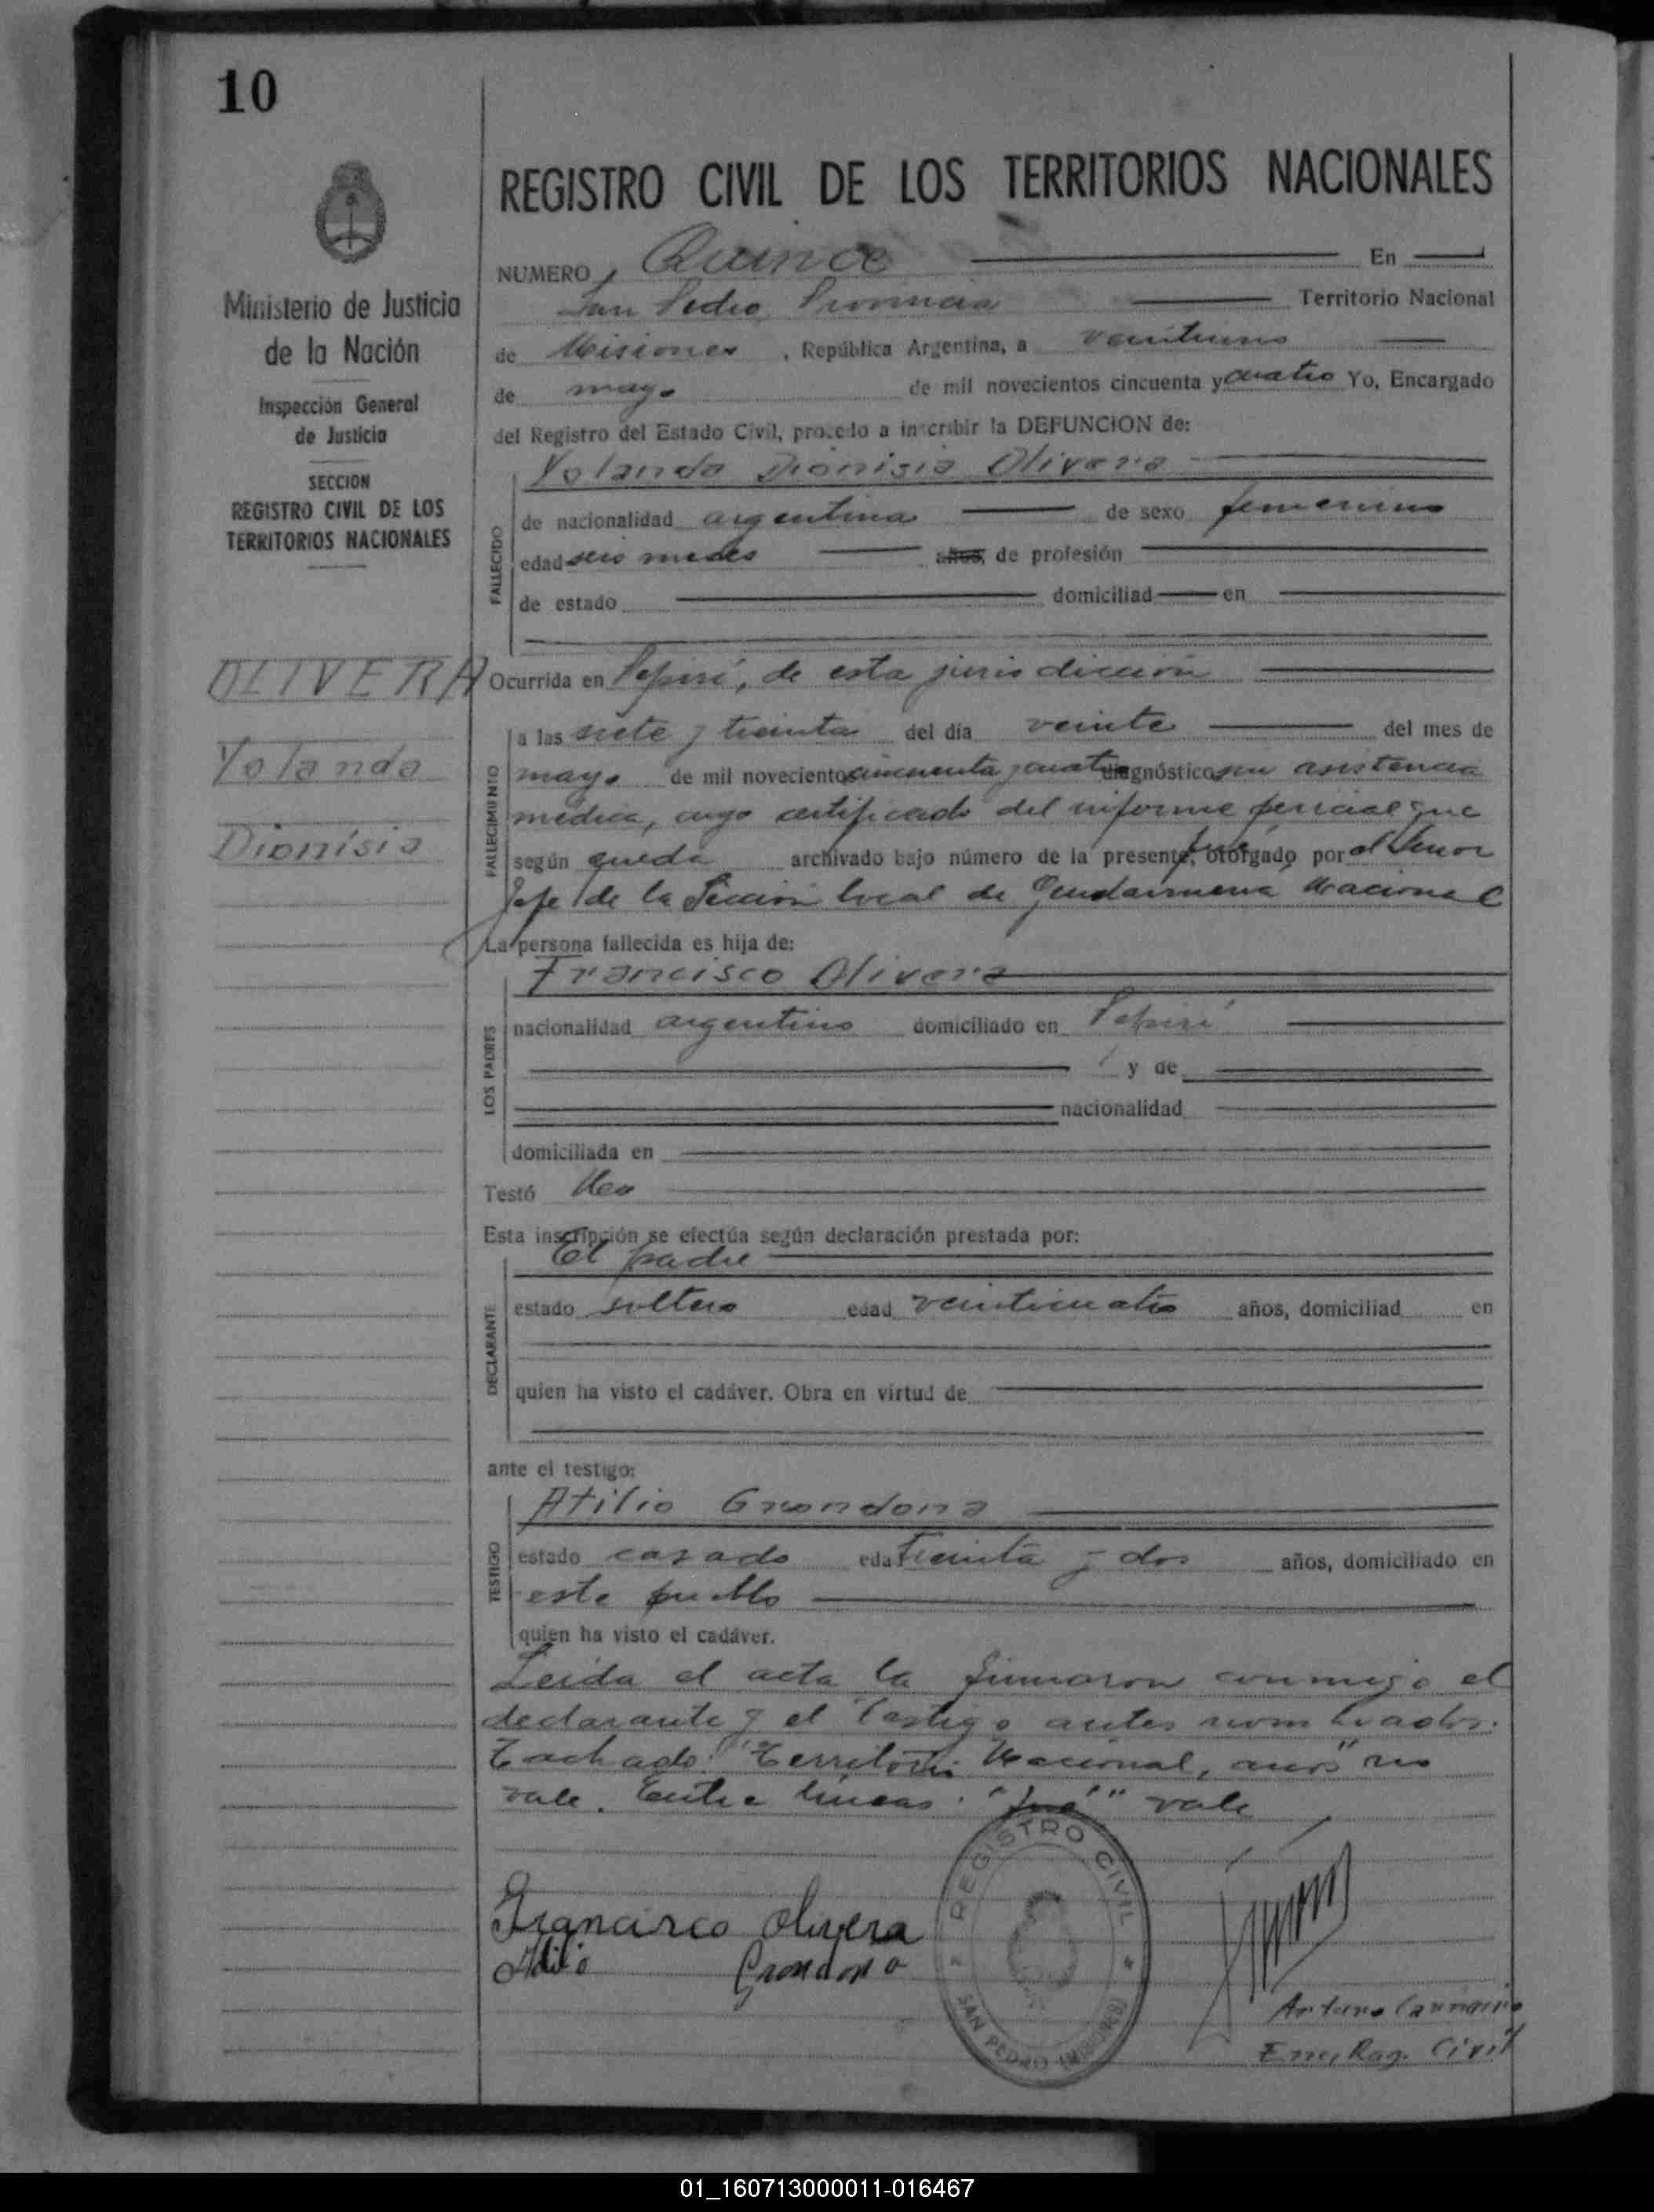 10
Ministerio de Justicia
de la Nación
Inspección General
de Justicia
SECCION
REGISTRO CIVIL DE LOS
TERRITORIOS NACIONALES
OLIVERA
Yolanda
Dionisia
REGISTRO CIVIL DE LOS TERRITORIOS NACIONALES
NUMERO Quince En
San Pedro Provincia Territorio Nacional
de Misiones, República Argentina, a veintiuno
de mayo de mil novecientos cincuenta y cuatro Yo, Encargado
del Registro del Estado Civil, procedo a inscribir la DEFUNCION de:
Yolanda Dionisia Olivera
FALLECIDO
de nacionalidad argentina de sexo femenino
edad seis meses años, de profesión
de estado domiciliad en
Ocurrida en Pepirí, de esta jurisdicción
FALLECIMIENTO
a las siete y treinta del día veinte del mes de
mayo de mil novecientos cincuenta y cuatro diagnóstico sin asistencia
médica, cuyo certificado del informe policial que
según queda archivado bajo número de la presente, fué otorgado por el Señor
Jefe de la Sección local de Gendarmería Nacional
La persona fallecida es hija de:
Francisco Olivera
LOS PADRES
nacionalidad argentino domiciliado en Pepirí
y de
nacionalidad
domiciliada en
Testó No
Esta inscripción se efectúa según declaración prestada por:
El padre
DECLARANTE
estado soltero edad veinticuatro años, domiciliad en
quien ha visto el cadáver. Obra en virtud de
ante el testigo:
Atilio Grondona
TESTIGO
estado casado edad treinta y dos años, domiciliado en
este pueblo
quien ha visto el cadáver.
Leida el acta la firmaron conmigo el
declarante y el testigo antes nombrados.
Tachado: "Territorio Nacional, años" no
vale. Entre líneas: "fué" vale
REGISTRO CIVIL
SAN PEDRO (MISIONES)
Francisco Olivera
Atilio Grondona
Arturo
Enc. Reg. Civil
01_160713000011-016467